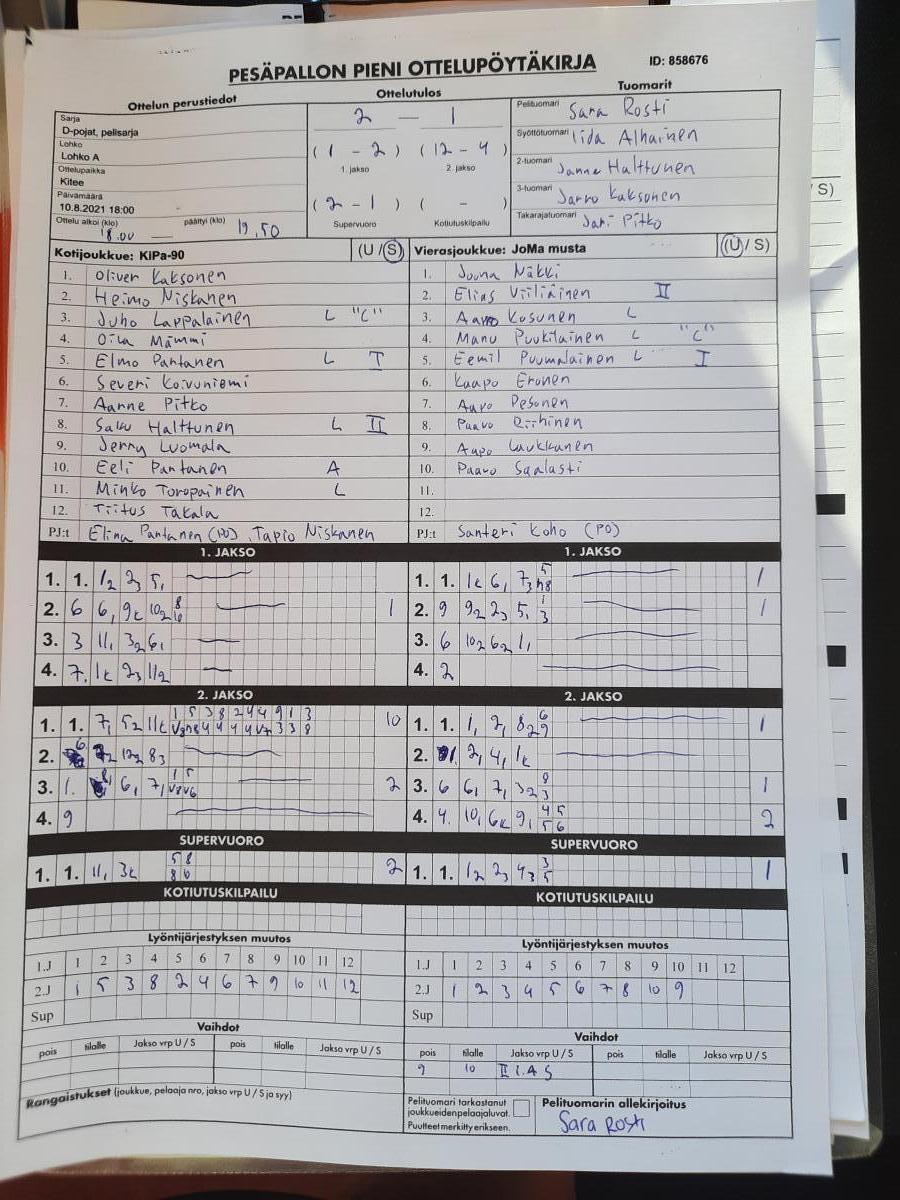 PESÄPALLON PIENI OTTELUPÖYTÄKIRJA
ID: 858676
Ottelun perustiedot
Sarja
D-pojat, pelisarja
Lohko
Lohko A
Ottelupaikka
Kitee
Päivämäärä
10.8.2021 18:00
Ottelu alkoi (klo) päättyi (klo)
18.00 — 19.50
Ottelutulos
2 — 1
(1 - 2) (12 - 4)
1. jakso 2. jakso
(2 - 1) ( - )
Supervuoro Kotiutuskilpailu
Tuomarit
Pelituomari Sara Rosti
Syöttötuomari Iida Alhainen
2-tuomari Janne Halttunen
3-tuomari Jarno Kaksonen
Takarajatuomari Jani Pitko
Kotijoukkue: KiPa-90 (U / S)
1. Oliver Kaksonen
2. Heimo Niskanen
3. Juho Lappalainen L "C"
4. Oiva Mämmi
5. Elmo Pantanen L I
6. Severi Koivuniemi
7. Aarne Pitko
8. Saku Halttunen L II
9. Jerry Luomala
10. Eeli Pantanen A
11. Minko Toropainen L
12. Tiitus Takala
PJ:t Elina Pantanen (PO), Tapio Niskanen
Vierasjoukkue: JoMa musta (U / S)
1. Joona Näkki
2. Elias Viiliäinen II
3. Aarro Kosunen L
4. Manu Puukilainen L "C"
5. Eemil Puumalainen L I
6. Kaapo Eronen
7. Aaro Pesonen
8. Paavo Riihinen
9. Aapo Laukkanen
10. Paavo Saalasti
11.
12.
PJ:t Santeri Koho (PO)
1. JAKSO
1. 1. 1₂ 2₃ 5₁
2. 6 6₁ 9k 10₂ 8 6 1
3. 3 11₁ 3₂ 6₁
4. 7. 1k 2₃ 11₂
1. JAKSO
1. 1. 1k 6₁ 7₃ 1
2. 9 9₂ 2₃ 5₁ 1 3 1
3. 6 10₂ 6₂ 1₁
4. 2
2. JAKSO
1. 1. 7₁ 5₂ 11k 1 5 3 8 2 4 4 9 1 3 10
2. 6 12₂ 8₃
3. 1. 8₁ 6₁ 7₁ 1 5 2
4. 9
2. JAKSO
1. 1. 1₁ 2₁ 8₂ 6 9 1
2. 2₁ 4₁ 1k
3. 6 6₁ 7₁ 3₂ 8 3 1
4. 4. 10₁ 6k 9₁ 4 5 5 6 2
SUPERVUORO
1. 1. 11₁ 3k 5 8 8 6 2
SUPERVUORO
1. 1. 1₂ 2₃ 4₃ 3 5 1
KOTIUTUSKILPAILU
KOTIUTUSKILPAILU
Lyöntijärjestyksen muutos
1.J 1 2 3 4 5 6 7 8 9 10 11 12
2.J 1 5 3 8 2 4 6 7 9 10 11 12
Sup
Lyöntijärjestyksen muutos
1.J 1 2 3 4 5 6 7 8 9 10 11 12
2.J 1 2 3 4 5 6 7 8 10 9
Sup
Vaihdot
pois tilalle Jakso vrp U / S pois tilalle Jakso vrp U / S
Vaihdot
pois tilalle Jakso vrp U / S pois tilalle Jakso vrp U / S
9 10 II 1.A S
Rangaistukset (joukkue, pelaaja nro, jakso vrp U / S ja syy)
Pelituomari tarkastanut
joukkueidenpelaajaluvat.
Puutteet merkitty erikseen.
Pelituomarin allekirjoitus
Sara Rosti
/ S)